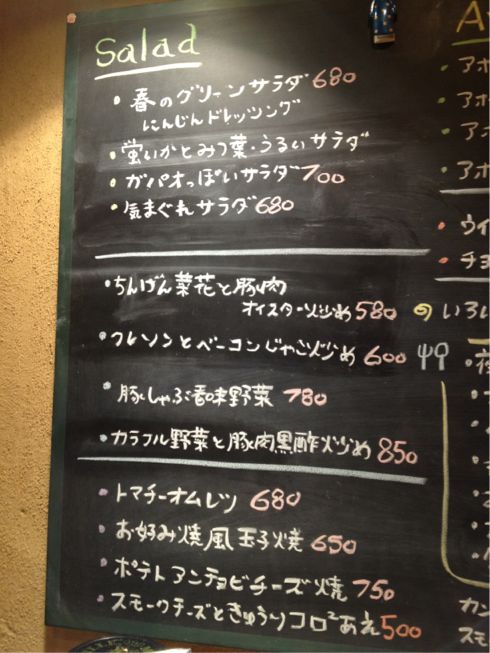 Salad
・春のグリーンサラダ 680
にんじんドレッシング
・蛍いかとみつ葉・うるいサラダ
・ガパオっぽいサラダ 700
・気まぐれサラダ 680
・ちんげん菜花と豚肉
オイスター炒め 580
・クレソンとベーコンじゃこ炒め 600
・豚しゃぶ香味野菜 780
・カラフル野菜と豚肉黒酢炒め 850
・トマチーオムレツ 680
・お好み焼風玉子焼 650
・ポテトアンチョビチーズ焼 750
・スモークチーズときゅうりコロ²あえ 500
A
・アボ
・アボ
・アボ
・アボ
・ウイ
・チョ
のいろい
・夜
カン
スモ